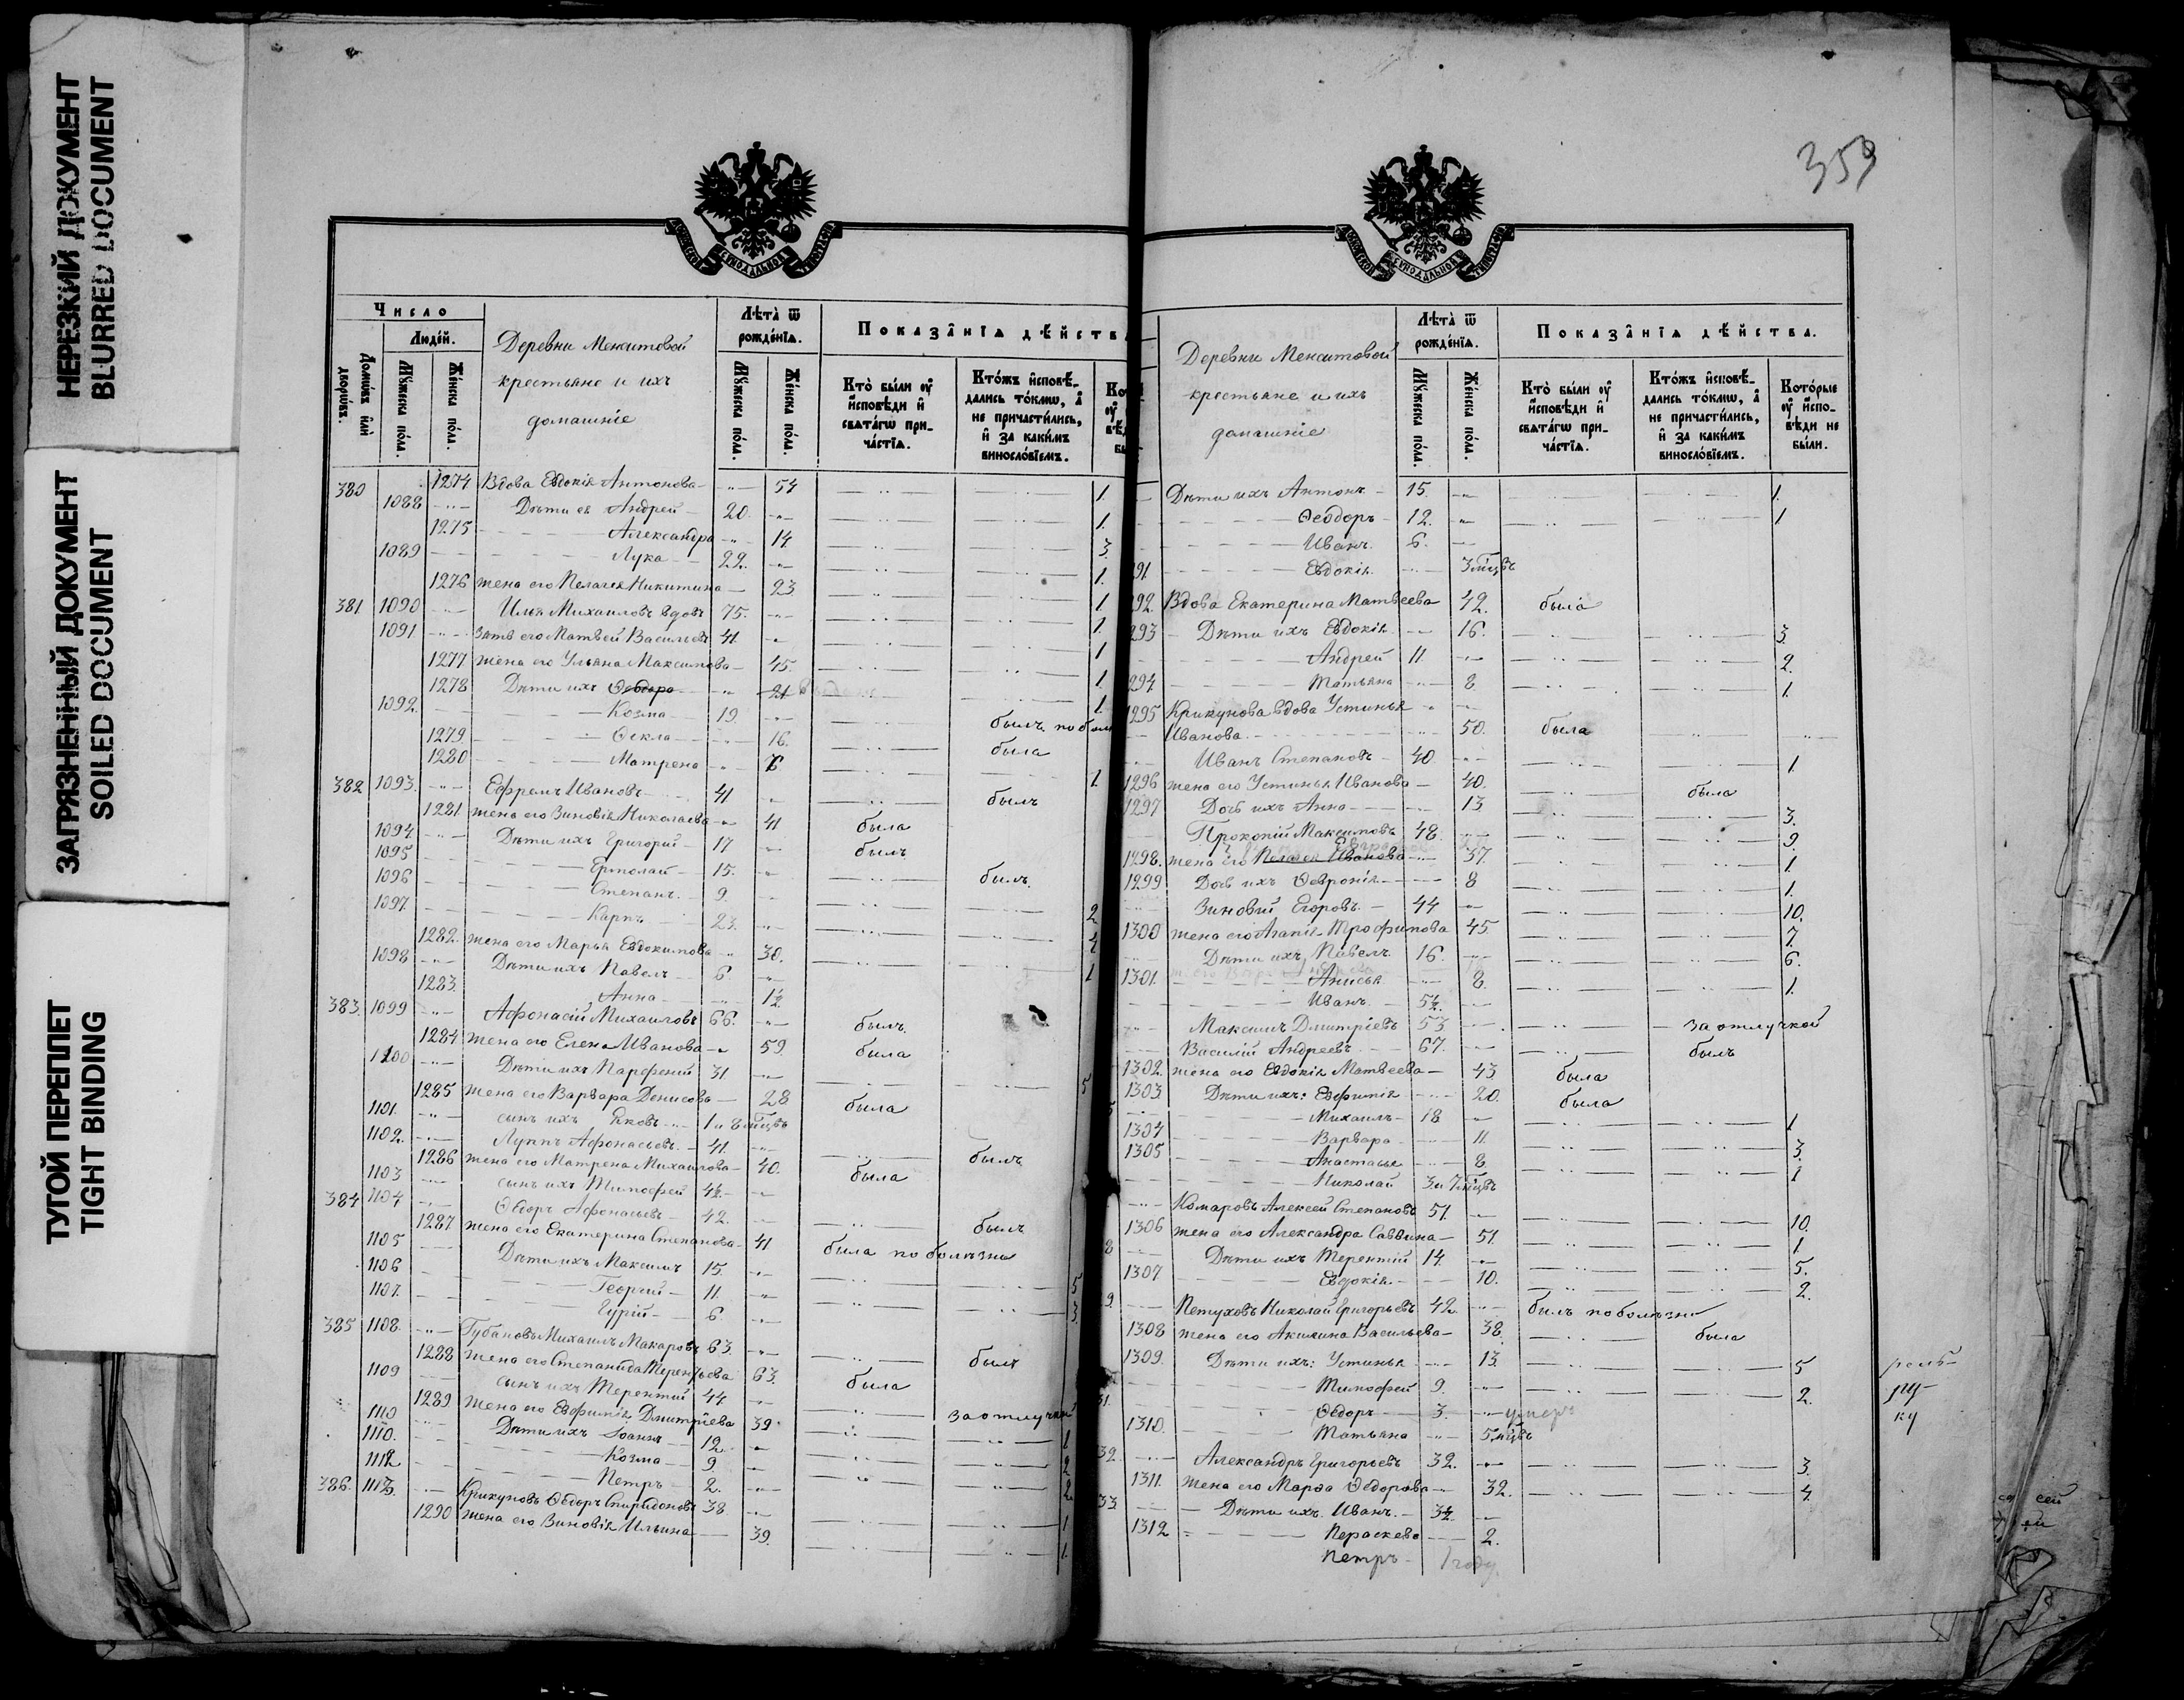 НЕРЕЗКИЙ ДОКУМЕНТ
BLURRED DOCUMENT
ЗАГРЯЗНЕННЫЙ ДОКУМЕНТ
SOILED DOCUMENT
ТУГОЙ ПЕРЕПЛЕТ
TIGHT BINDING
Число
Домѡвъ или дворѡвъ.
Людей.
Мꙋжеска пола.
Женска пола.
Деревни Менситовой
крестьяне и ихъ
домашніе
Лѣта ѿ рожденїѧ.
Мꙋжеска пола.
Женска пола.
Показанїѧ дѣйства
Кто были оу исповѣди и свѧтагѡ причастїѧ.
Ктожъ исповѣдались токмѡ, а не причастились, и за какимъ винословїемъ.
380 1274 Вдова Евдокія Антонова 54 1.
1088 Дѣти ея Андрей 20. 1.
1275 Александра 14 3.
1089 Лука 22. 1.
1276 жена его Пелагея Никитина 23 1
381 1090 Илья Михаиловъ вдовъ 75. 1.
1091 Зять его Матвей Васильевъ 41. 1
1277 жена его Ульяна Максимова 45. 1.
1278 Дѣти ихъ Ѳеодора 21 1.
1092. Козма 19. былъ по бол
1279 Ѳекла 16. была
1280 Матрена 7 1.
382 1093. Ефремъ Ивановъ 41 былъ
1281. жена его Зиновія Николаева 41 была
1094 Дѣти ихъ Григорій 17 былъ
1095 Ермолай 15. былъ
1096 Степанъ 9 2
1097. Карпъ 23. 4
1282. жена его Марья Евдокимова 30. 1
1098 Дѣти ихъ Павелъ 6
1283. Анна 1½
383. 1099 Афонасій Михаиловъ 66. былъ
1284 жена его Елена Иванова 59. была
1100 Дѣти ихъ Парфеній 31. 5
1285 жена его Варвара Денисова 28 была
1101. сынъ ихъ Яковъ 1 и 8 мцвъ
1102. Луппъ Афонасьевъ 41. былъ
1286 жена его Матрена Михаилова 40. была
1103 сынъ ихъ Тимофей 4½
384 1104 Ѳедоръ Афонасьевъ 42. былъ
1287 жена его Екатерина Степанова 41 была по болѣзни
1105 Дѣти ихъ Максимъ 15. 5
1106 Георгий 11. 3.
1107. Гурій 6.
385 1108. Губановъ Михаилъ Макаровъ 63. былъ
1288 жена его Степанида Терентьева 63. была
1109 сынъ ихъ Терентий 44 за отлучкой
1289 жена его Евфимія Дмитріева 39. 1
1110. Дѣти ихъ Іоаннъ 12. 2
Козма 9 2
1112 Петръ 2.
386. 1113. Крикуновъ Ѳедоръ Спиридоновъ 38 1
1290 жена его Зиновія Ильина 39. 1.
359
Деревни Менситовой
крестьяне и ихъ
домашніе
Лѣта ѿ рожденїѧ.
Мꙋжеска пола.
Женска пола.
Показанїѧ дѣйства.
Кто были оу исповѣди и свѧтагѡ причастїѧ.
Ктожъ исповѣдались токмѡ, а не причастились, и за какимъ винословїемъ.
Которые оу исповѣди не были.
Дѣти ихъ Антонъ 15. 1.
Ѳеодоръ 12. 1
Иванъ. 6.
91. Евдокія 3 мцвъ
292. Вдова Екатерина Матвеева 42. была
293 Дѣти ихъ Евдокія 16. 3.
Андрей 11. 2.
294 Татьяна 8. 1.
1295 Крикунова вдова Устинья
Иванова 50. была
Иванъ Степановъ 40 1.
1296 жена его Устинья Иванова 40. была
1297 Дочь ихъ Анна 13 3.
Прокопій Максимовъ 48 9.
1298. жена его Пелагея Иванова 37. 1.
1299 Дочь ихъ Ѳевронія 8 1.
Зиновій Егоровъ 44 10.
1300 жена его Агапія Трофимова 45 7.
Дѣти ихъ Павелъ 16. 6.
1301. Анисья 8. 1.
Иванъ 5½
Максимъ Дмитріевъ 53 за отлучкой
Василій Андреевъ 67. былъ
1302. жена его Евдокія Матвеева 43 была
1303. Дѣти ихъ: Евфимія 20. была
Михаилъ 18 1
1304 Варвара 11. 3.
1305 Анастасья 8. 1
Николай 3 и 7 мцвъ
Комаровъ Алексей Степановъ 51. 10.
1306 жена его Александра Саввина 51. 1
Дѣти ихъ Терентій 14. 5.
1307 Евдокія 10. 2.
Петуховъ Николай Григорьевъ 42. былъ по болѣзни
1308 жена его Акилина Васильева 38. была
1309. Дѣти ихъ: Устинья 13 5
Тимофей 9. 2.
Ѳедоръ 3. умеръ
1310. Татьяна 5 мцвъ
32. Александръ Григорьевъ 32. 3.
1311. жена его Марѳа Ѳедорова 32. 4.
33. Дѣти ихъ. Иванъ. 3½
1312 Параскева 2.
Петръ 1 году